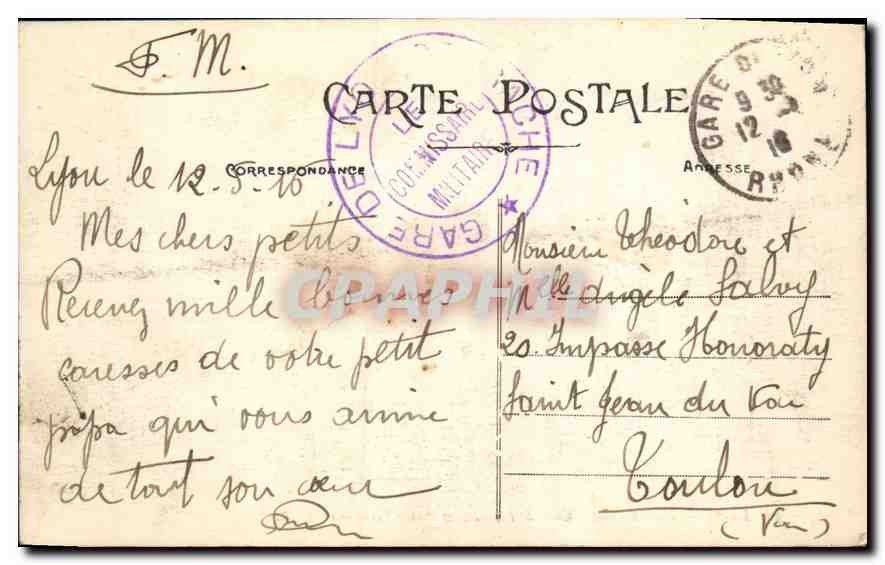 F. M.
CARTE POSTALE
CORRESPONDANCE
ADRESSE
GARE DE LYON
LE COMMISSAIRE MILITAIRE
GARE DE
RHONE
12
16
Lyon le 12-5-16
Mes chers petits
Recevez mille bonnes
caresses de votre petit
papa qui vous aime
de tout son cœur
Monsieur Théodore et
Melle Angèle Salvy
20. Impasse Honoraty
Saint Jean du Var
Toulon
(Var)
CPAPHIL